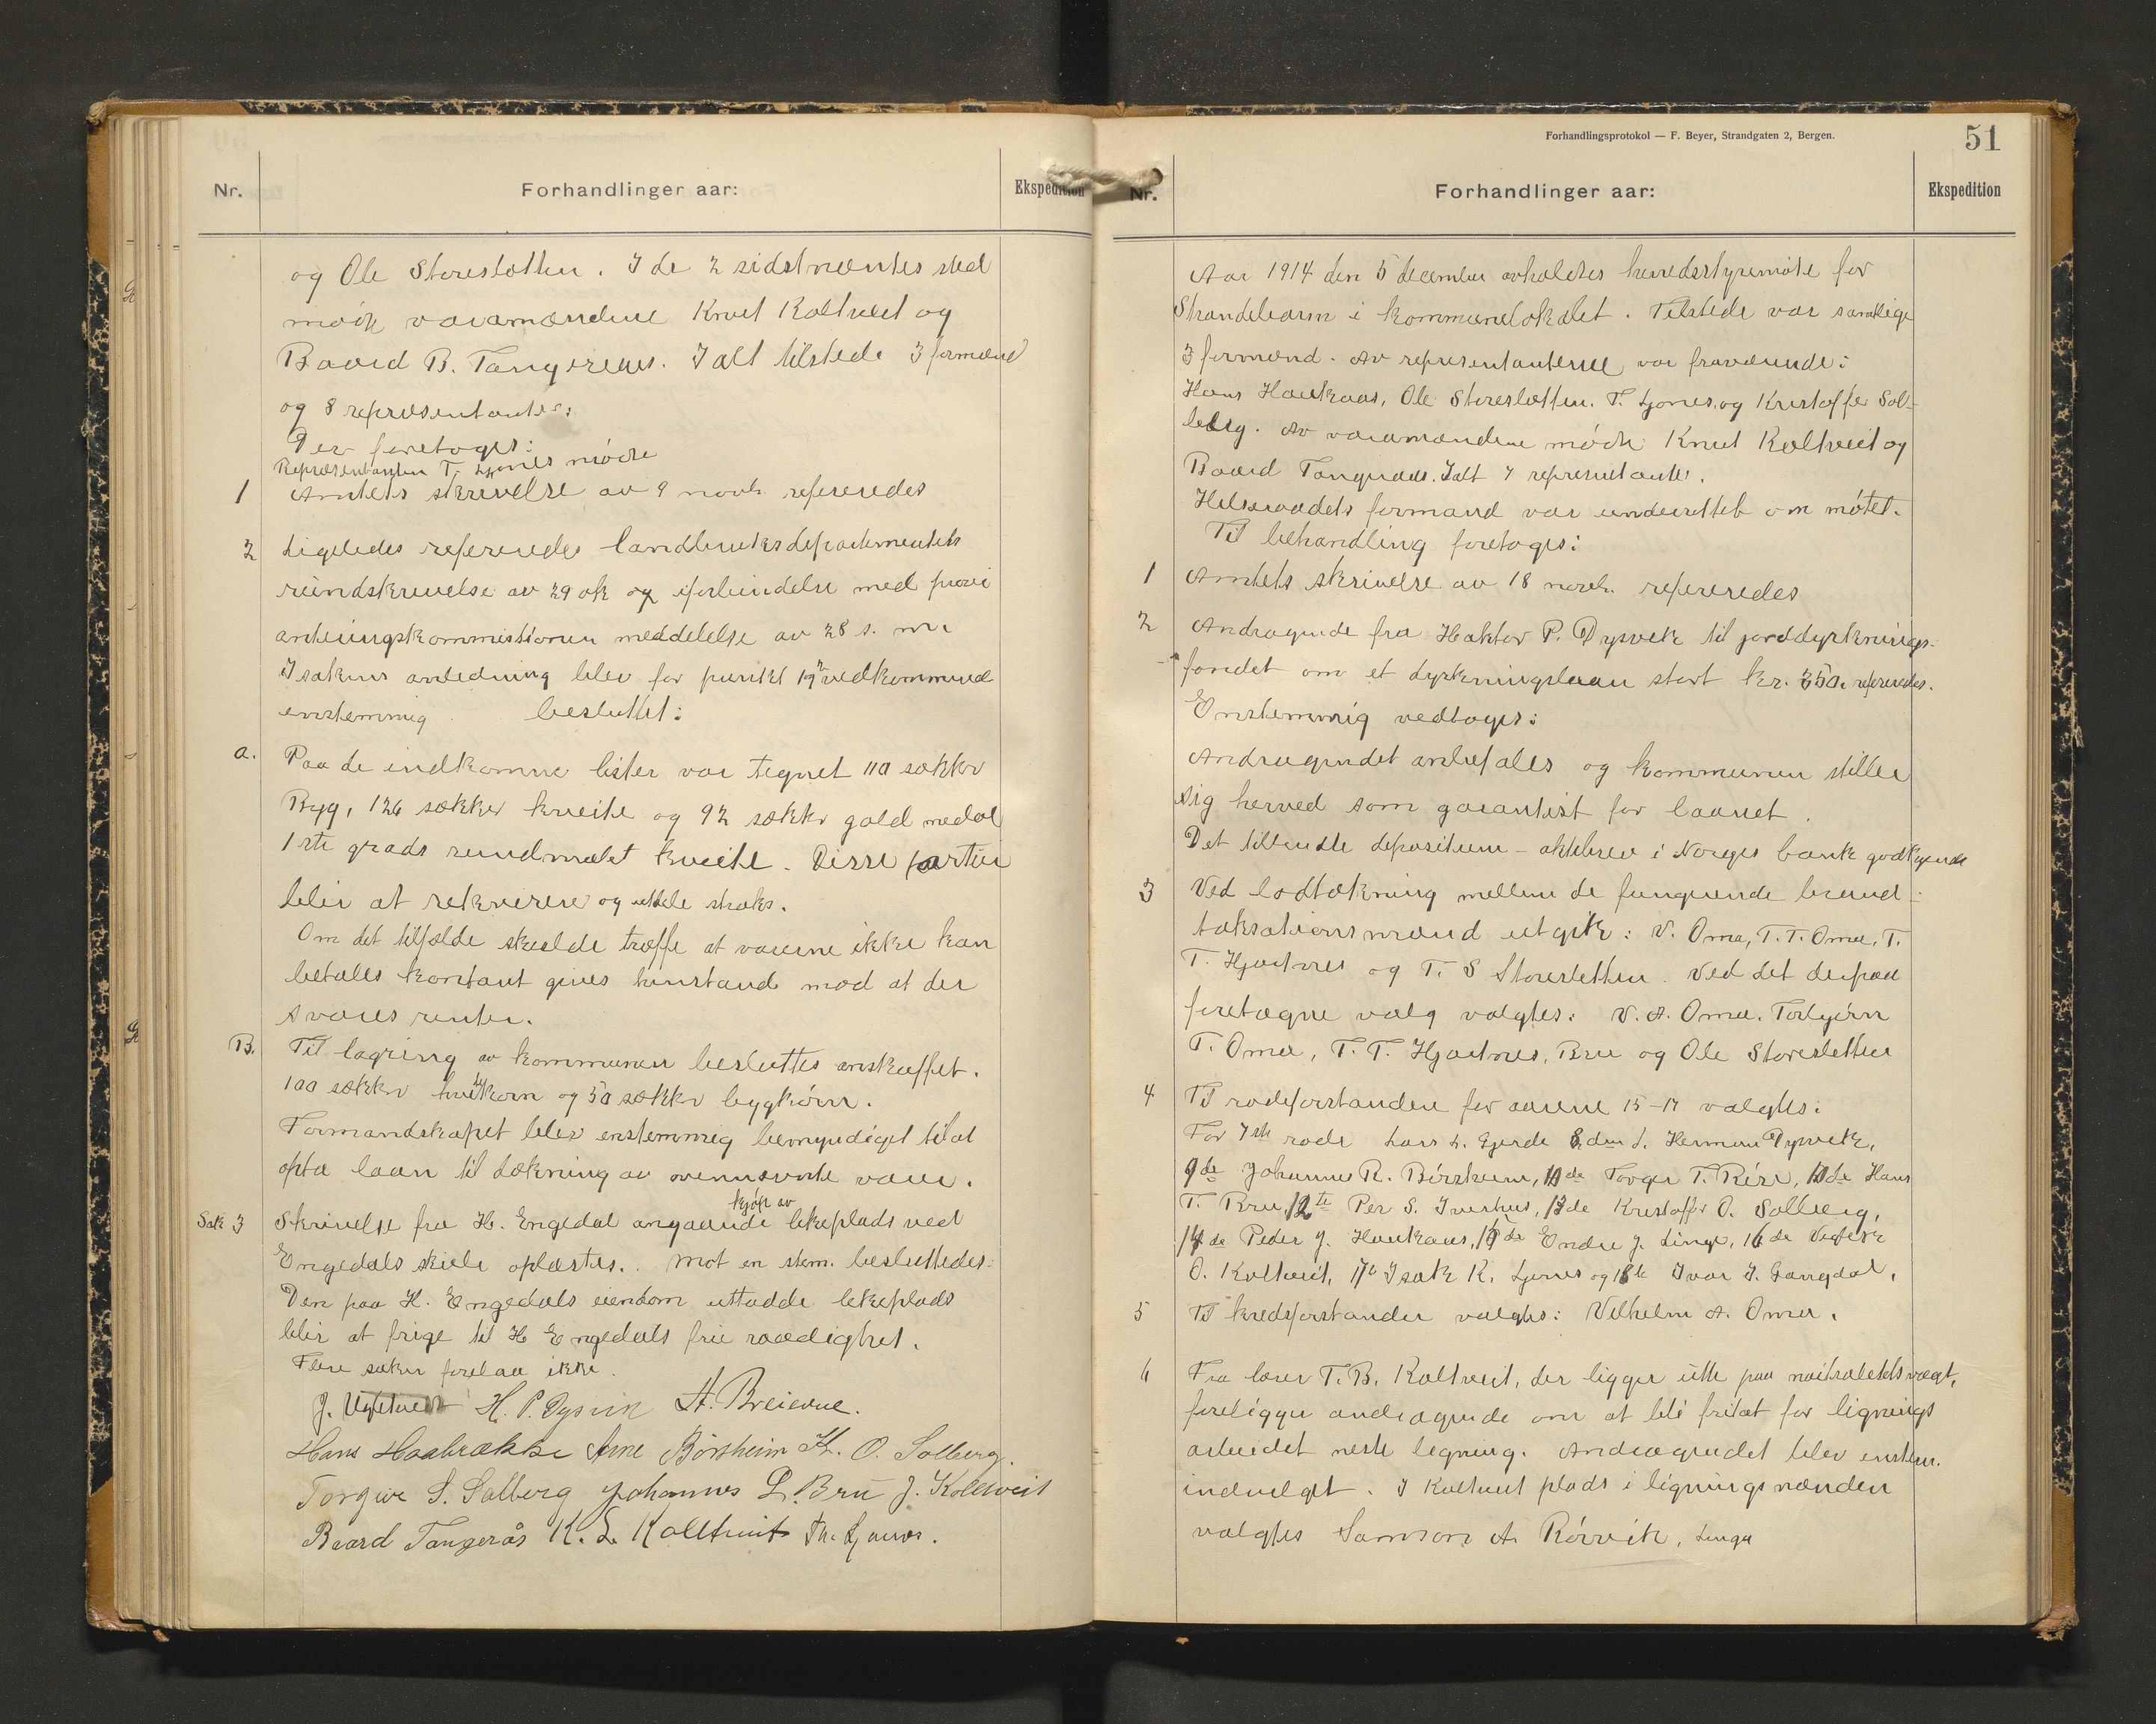 Nr.
Forhandlinger aar:
Ekspedition
og Ole Storesletten. I de 2 sidstnævntes sted
mødte varamændene Knut Koltveit og
Baard B. Tangeraas. I alt tilstede 3 formænd
og 8 repræsentanter:
Der foretoges:
Repræsentanten T. Ljones mødte
1 Amtets skrivelse av 9 novb. refereredes
2 Ligeledes refereredes landbruksdepartementets
rundskrivelse av 29 ok og i forbindelse med provi
anteringskommissionen meddelelse av 28 s. m.
I sakens anledning blev for punkt 1 vedkommend
enstemmig besluttet:
a. Paa de indkomne lister var tegnet 110 sækker
Byg, 126 sækker kveite og 92 sækker gold medal
1ste grads rundmalet kveite. Disse partier
blir at rekvirere og utdele straks.
Om det tilfælde skulde træffe at varerne ikke kan
betales kontant gives henstand mod at der
svares renter.
B. Til lagring av kommunen besluttes anskaffet.
100 sækker hvetkorn og 50 sækker bygkorn.
Formandskapet blev enstemmig bemyndiget til at
opta laan til dækning av ovennævnte varer.
kjøp av
Sak 3 Skrivelse fra H. Engedal angaaende lekeplads ved
Engedals skole oplæstes. Mot en stem. besluttedes:
Den paa H. Engedals eiendom uttadde lekeplads
blir at frige til H Engedals frie raadighet.
Flere saker forelaa ikke.
J. H. P. Dysvik A. Breievne.
Hans Haabrække Arne Børsheim K. O. Solberg.
Torgeir S. Solberg Johannes L. Bru J. Koltveit
Baard Tangerås K. L. Koltveit Th. Ljones.
Forhandlingsprotokol — F. Beyer, Strandgaten 2, Bergen.
51
Nr.
Forhandlinger aar:
Ekspedition
Aar 1914 den 5 december avholdtes herredsstyremøte for
Strandebarm i kommunelokalet. Tilstede var samtlige
3 formænd. Av representanterne var fraværende:
Hans Haukaas, Ole Storesletten. T. Ljones, og Kristoffer Sol-
berg. Av varamændene mødte Knut Koltveit og
Baard Tangeraas. Ialt 7 representanter.
Helseraadets formand var underrettet om møtet.
Til behandling foretoges:
1 Amtets skrivelse av 18 novb. refereredes
2 Andragende fra Haktor P. Dysvik til jorddyrknings-
fondet om et dyrkningslaan stort kr. 350. refereredes.
Enstemmig vedtoges:
Andragendet anbefales og kommunen stiller
sig herved som garantist for laanet.
Det tilsendte depositum-aktebrev i Norges bank godkjende
3 Ved lodtrækning mellem de fungerende brand-
taksationsmænd utgik: V. Oma, T. T. Oma, T.
T. Hjartnes og T. S Storesletten. Ved det derpaa
foretagne valg valgtes: V. A. Oma. Torbjørn
T. Oma, T. T. Hjartnes, Bru og Ole Storesletten
4 Til rodeforstandere for aarene 15-17 valgtes:
For 7de rode Lars L. Gjerde 8.de d. Herman Dysvik,
9de Johannes R. Børsheim, 10de Torger T. Røse, 11de Hans
T. Bru, 12te Per S. Iverhus, 13de Kristoffer O. Solberg,
14de Peder J. Haukaas, 15de Endre J. Linge, 16de
O. Koltveit, 17de Isak K. Ljones og 18de Ivar I. Gangdal.
5 Til kredsforstander valgtes: Vilhelm A. Oma.
6 Fra lærer T. B. Koltveit, der ligger ute paa nøitralitetsvagt,
foreligger andragende om at bli fritat for lignings
arbeidet neste ligning. Andragendet blev enstem.
indvilget. I Koltveit plads i ligningsnævnden
valgtes Samson A. Rørvik, Linga